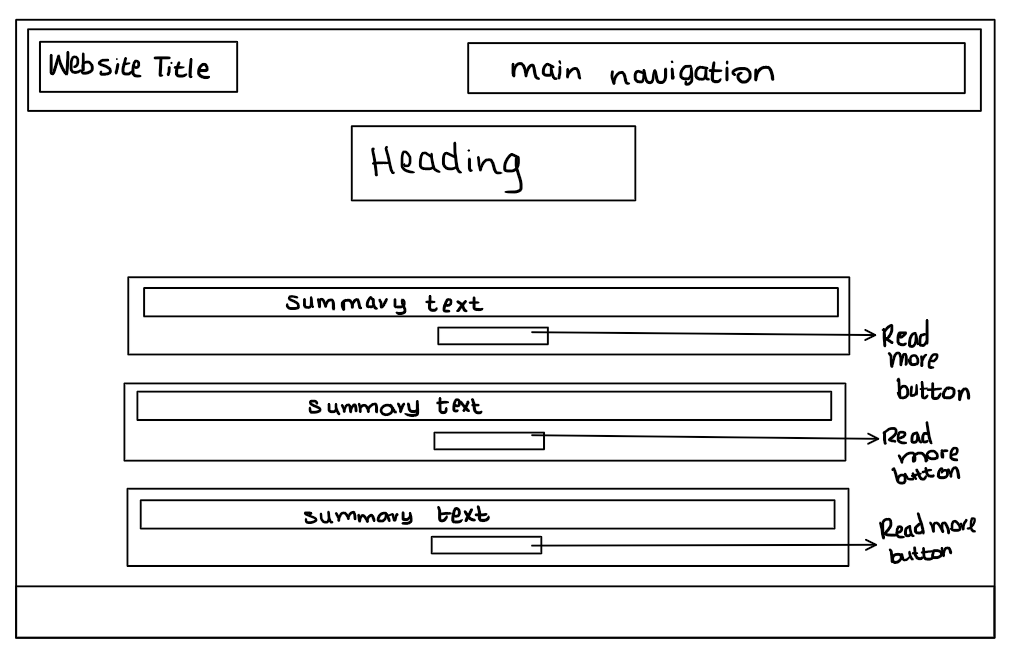 Website Title
main navigation
Heading
summary text
Read
more
button
summary text
Read
more
button
summary text
Read more
button